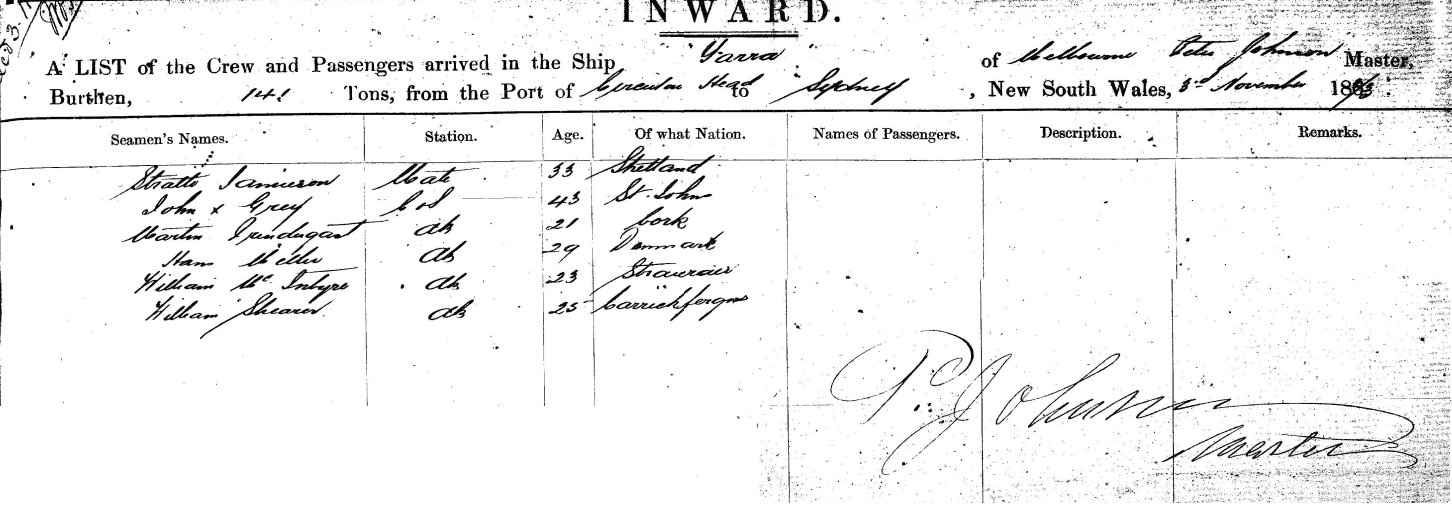 INWARD.
A LIST of the Crew and Passengers arrived in the Ship "Yarra" of Melbourne Peter Johnson Master,
Burthen, 141 Tons, from the Port of Circular Head to Sydney, New South Wales, 3rd November 18
Seamen's Names. Station. Age. Of what Nation. Names of Passengers. Description. Remarks.
Jamieson Mate 33 Shetland
John x Grey C & S 43 St. John
Martin ab 21 Cork
Hans Miller ab 29 Denmark
William Mc Intyre ab 23
William Shearer ab 25 Carrickfergus
P. C. Johnson
Master